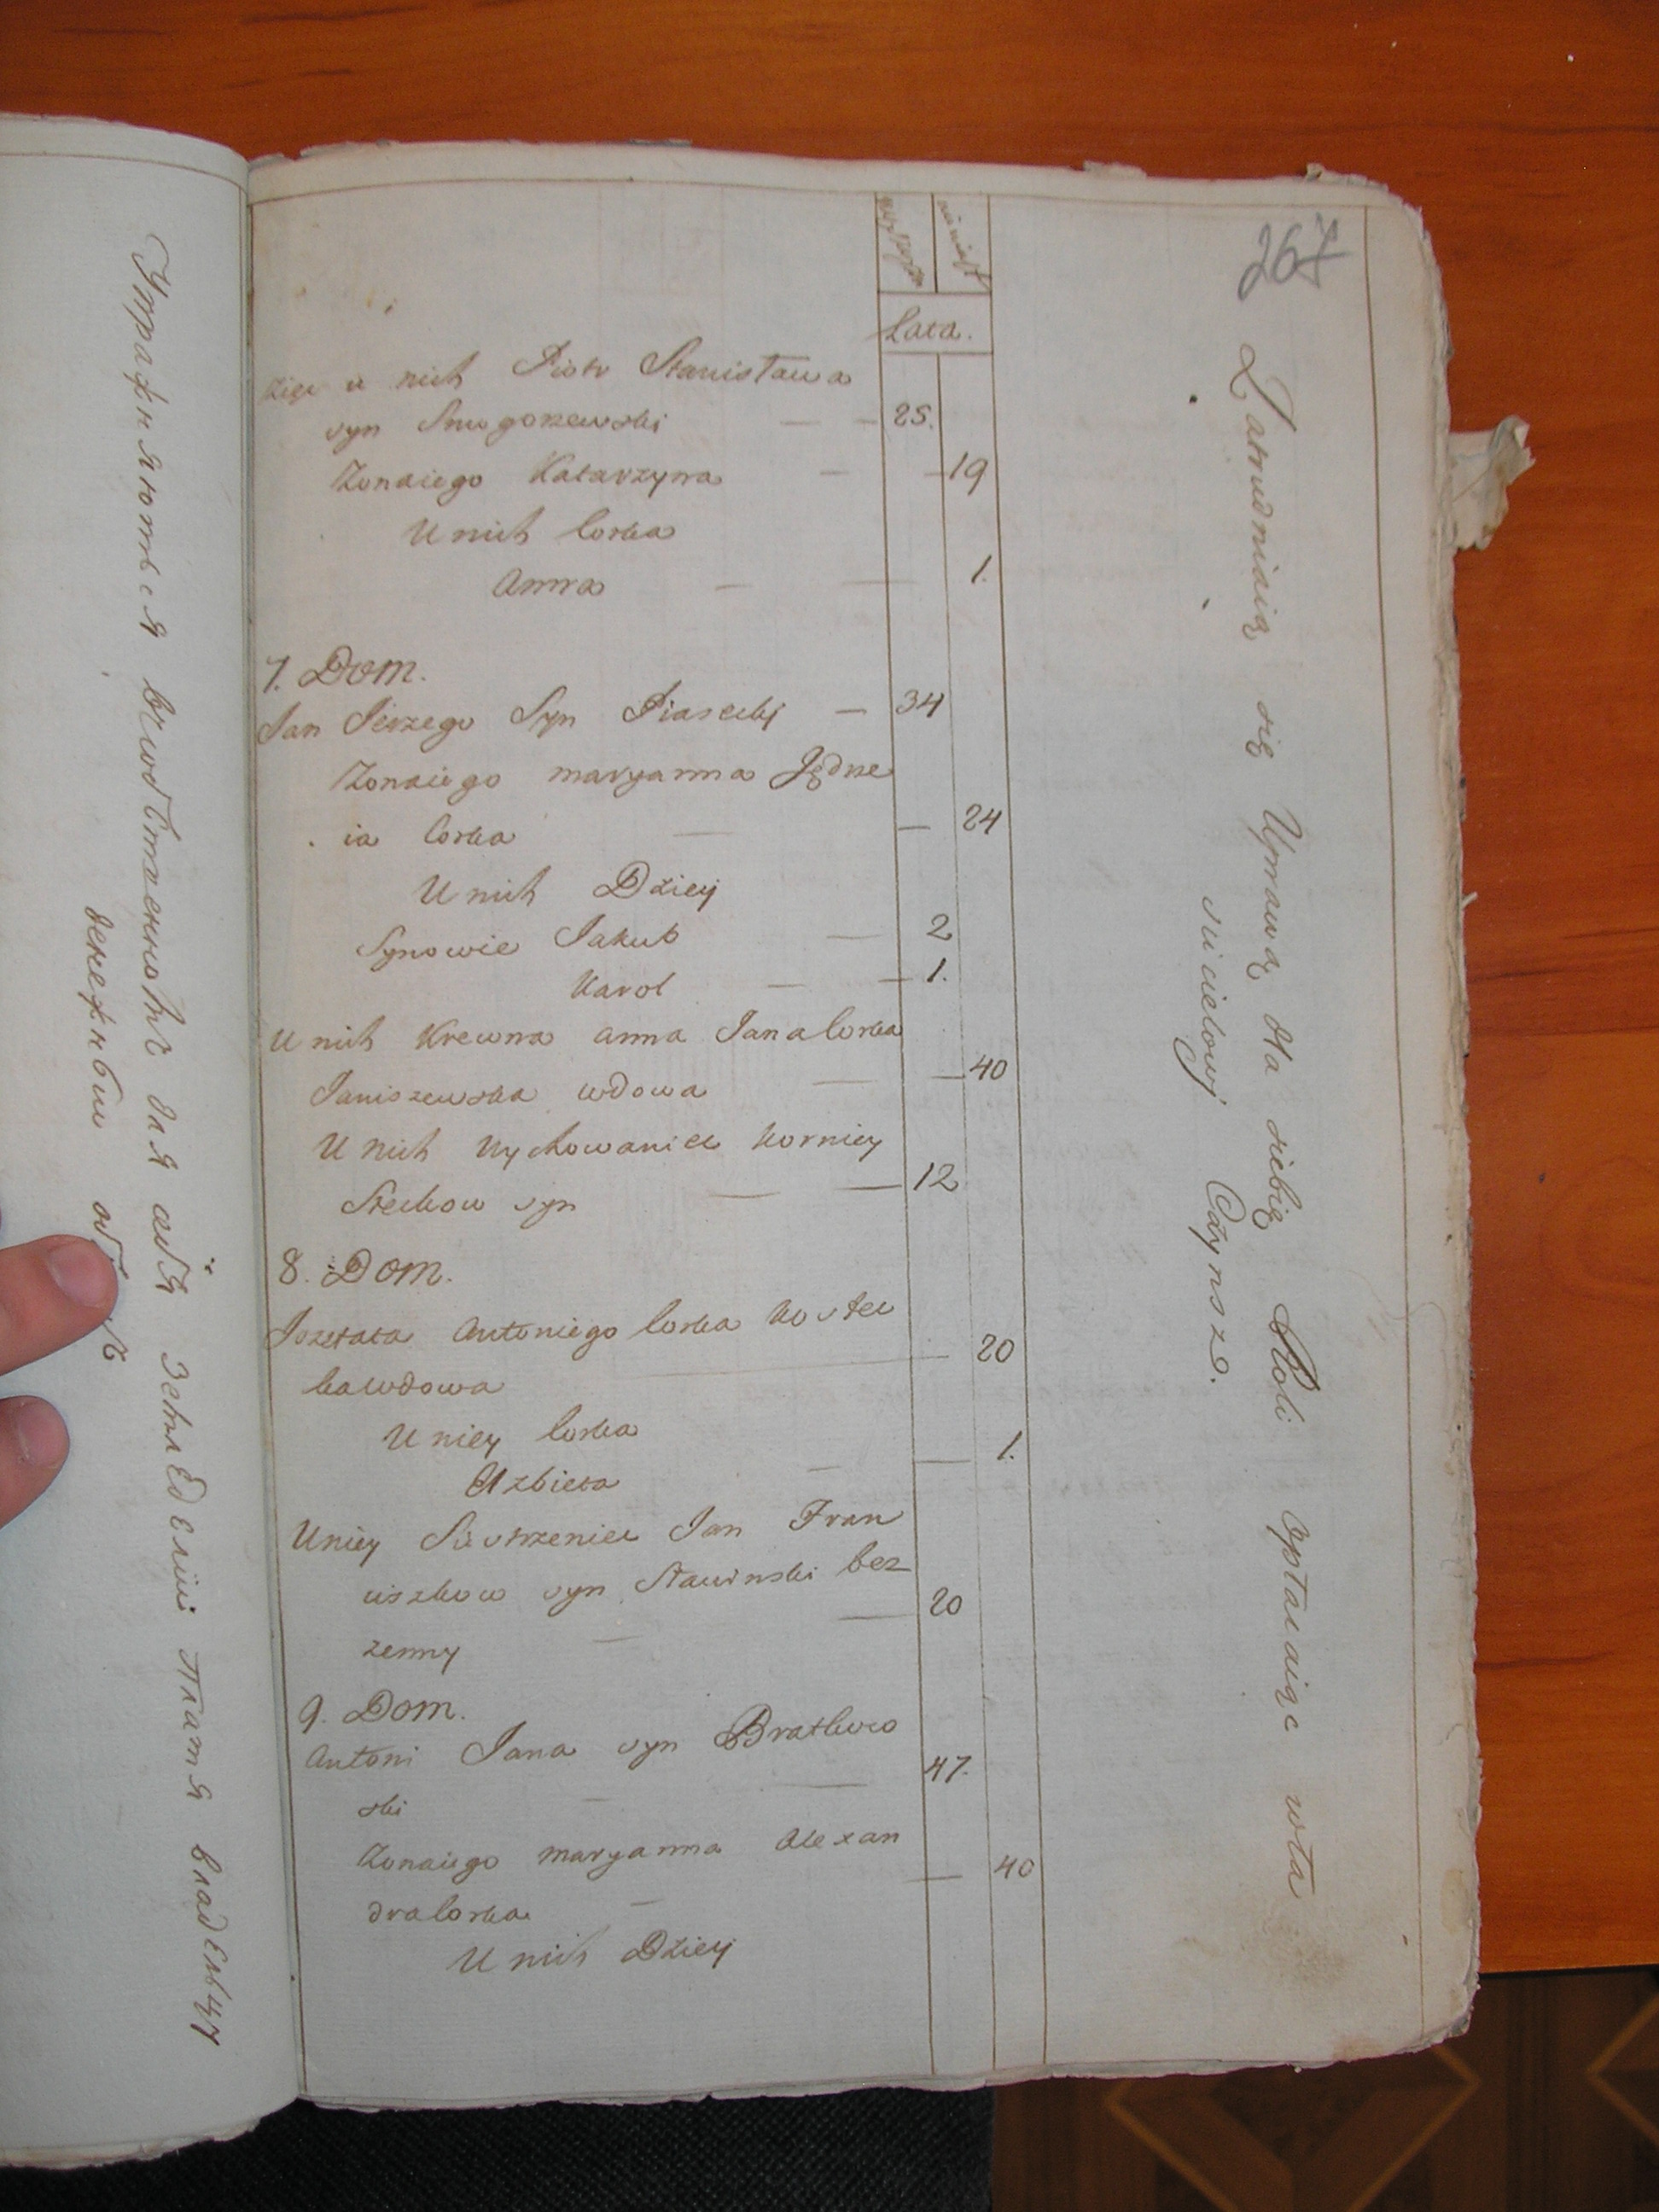 Упражняються
для себя земледелия платя владельцу
денежный
267
Lata.
u nich Piotr Stanisława
syn Snugorzewski — — 25.
Zonaiego Katarzyna — — 19
U nich Corka
Anna — — 1.
7. Dom.
Jan Jerzego Syn Piasecki — 34
Zonaiego maryanna Jędrze
ia Corka — — 24
U nich Dzieci
Synowie Jakub — 2
Karol — — 1.
U nich Krewna anna Jana Corka
Janiszewska wdowa — — 40
U nich Wychowaniec Korniey
Steckow syn — — 12
8. Dom.
Jozefata Antoniego Corka Kostec
ka wdowa — 20
U niey Corka
Elzbieta — — 1.
U niey Siostrzeniec Jan Fran
ciszkow syn Stawinski bez
zenny — — 20
9. Dom.
Antoni Jana syn Bratkow
ski — — 47.
Zonaiego maryanna Alexan
dra Corka — — 40
U nich Dzieci
Zatrudniaią się Uprawą dla siebię Roli opłacaiąc wła
scicielowj Czynsz.